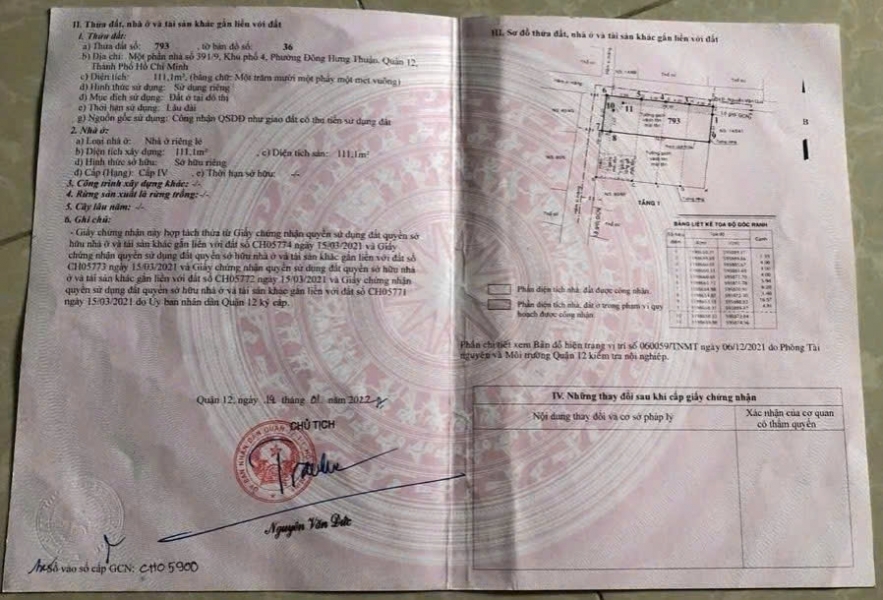 II. Thửa đất, nhà ở và tài sản khác gắn liền với đất
1. Thửa đất:
a) Thửa đất số: 793, tờ bản đồ số: 36
b) Địa chỉ: Một phần nhà số 391/9, Khu phố 4, Phường Đông Hưng Thuận, Quận 12,
Thành Phố Hồ Chí Minh
c) Diện tích: 111,1m², (bằng chữ: Một trăm mười một phẩy một mét vuông)
d) Hình thức sử dụng: Sử dụng riêng
đ) Mục đích sử dụng: Đất ở tại đô thị
e) Thời hạn sử dụng: Lâu dài
g) Nguồn gốc sử dụng: Công nhận QSDĐ như giao đất có thu tiền sử dụng đất
2. Nhà ở:
a) Loại nhà ở: Nhà ở riêng lẻ
b) Diện tích xây dựng: 111,1m², c) Diện tích sàn: 111,1m²
d) Hình thức sở hữu: Sở hữu riêng
đ) Cấp (Hạng): Cấp IV, e) Thời hạn sở hữu: -/-
3. Công trình xây dựng khác: -/-
4. Rừng sản xuất là rừng trồng: -/-
5. Cây lâu năm: -/-
6. Ghi chú:
- Giấy chứng nhận này hợp tách thửa từ Giấy chứng nhận quyền sử dụng đất quyền sở
hữu nhà ở và tài sản khác gắn liền với đất số CH05774 ngày 15/03/2021 và Giấy
chứng nhận quyền sử dụng đất quyền sở hữu nhà ở và tài sản khác gắn liền với đất số
CH05773 ngày 15/03/2021 và Giấy chứng nhận quyền sử dụng đất quyền sở hữu nhà
ở và tài sản khác gắn liền với đất số CH05772 ngày 15/03/2021 và Giấy chứng nhận
quyền sử dụng đất quyền sở hữu nhà ở và tài sản khác gắn liền với đất số CH05771
ngày 15/03/2021 do Ủy ban nhân dân Quận 12 ký cấp.
Quận 12, ngày 19 tháng 01 năm 2022
CHỦ TỊCH
Nguyễn Văn Đức
Số vào sổ cấp GCN: CH05900
III. Sơ đồ thửa đất, nhà ở và tài sản khác gắn liền với đất
B
10
11
1
793
9
8
TẦNG 1
BẢNG LIỆT KÊ TỌA ĐỘ GÓC RANH
Phần diện tích nhà, đất được công nhận.
Phần diện tích nhà, đất ở trong phạm vi quy
hoạch được công nhận.
Phần chi tiết xem Bản đồ hiện trạng vị trí số 060059/TNMT ngày 06/12/2021 do Phòng Tài
nguyên và Môi trường Quận 12 kiểm tra nội nghiệp.
IV. Những thay đổi sau khi cấp giấy chứng nhận
Nội dung thay đổi và cơ sở pháp lý
Xác nhận của cơ quan
có thẩm quyền